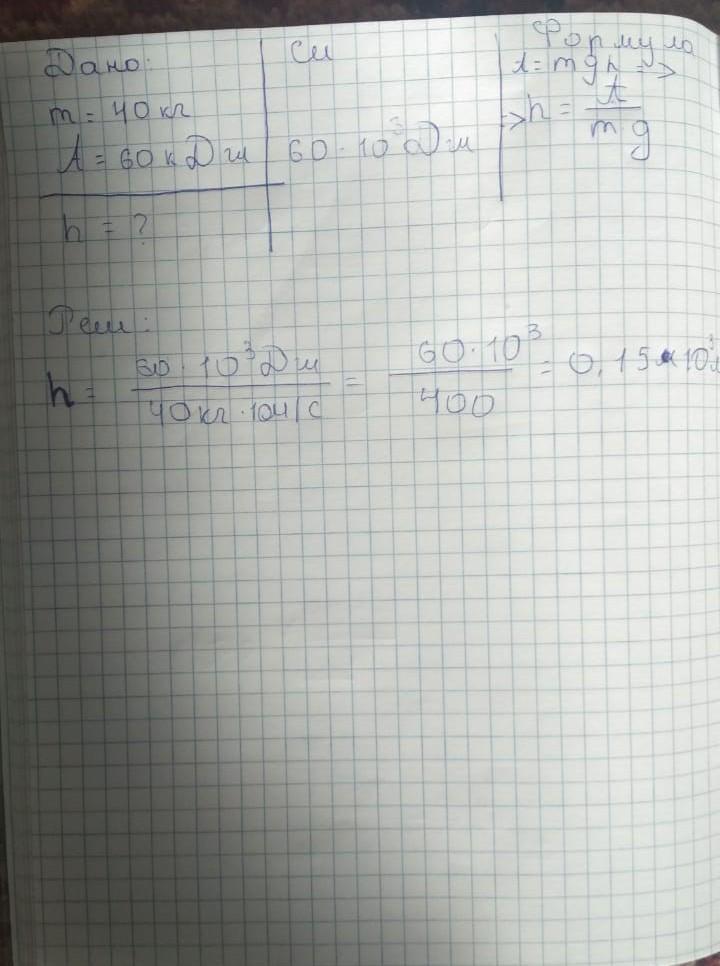 Дано:
m = 40 кг
A = 60 кДж
h = ?
Си
60 · 10³ Дж
Формула
A = mgh =>
=> h = A / mg
Реш:
h = 60 · 10³ Дж / 40 кг · 10 н/с = 60 · 10³ / 400 = 0,15 · 10³